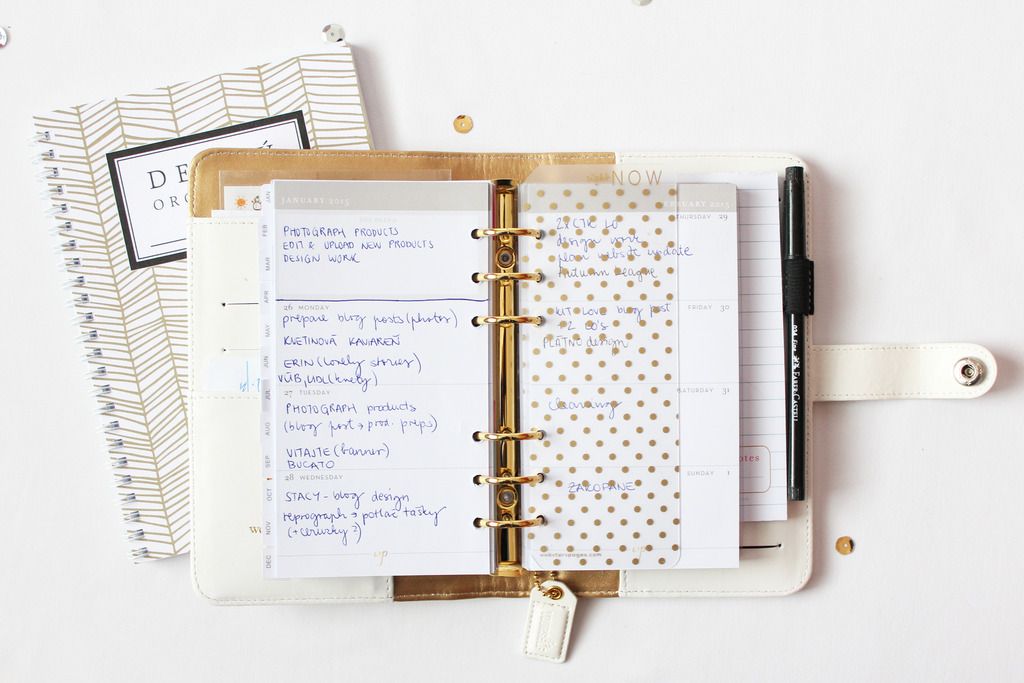 DE
ORG
JANUARY 2015
JAN
FEB
MAR
APR
MAY
JUN
JUL
AUG
SEP
OCT
NOV
DEC
PHOTOGRAPH PRODUCTS
EDIT & UPLOAD NEW PRODUCTS
DESIGN WORK
26 MONDAY
prepare blog posts (photos)
KVETINOVÁ KAVIAREŇ
ERIN (lovely stories)
27 TUESDAY
PHOTOGRAPH products
(blog post → prod. preps)
VITAJTE (banner)
BUCATO
28 WEDNESDAY
STACY - blog design
reprograph → potlač tašky
(+ceruzky?)
NOW
FEBRUARY 2015
THURSDAY 29
2x CTK LO
design work
plan website update
Autumn League
FRIDAY 30
KIT LOVE blog post
+ 2 LO's
PLÁTNO design
SATURDAY 31
cleaning
SUNDAY 1
ZAKOPANE
websterspages.com
notes
FABER CASTELL